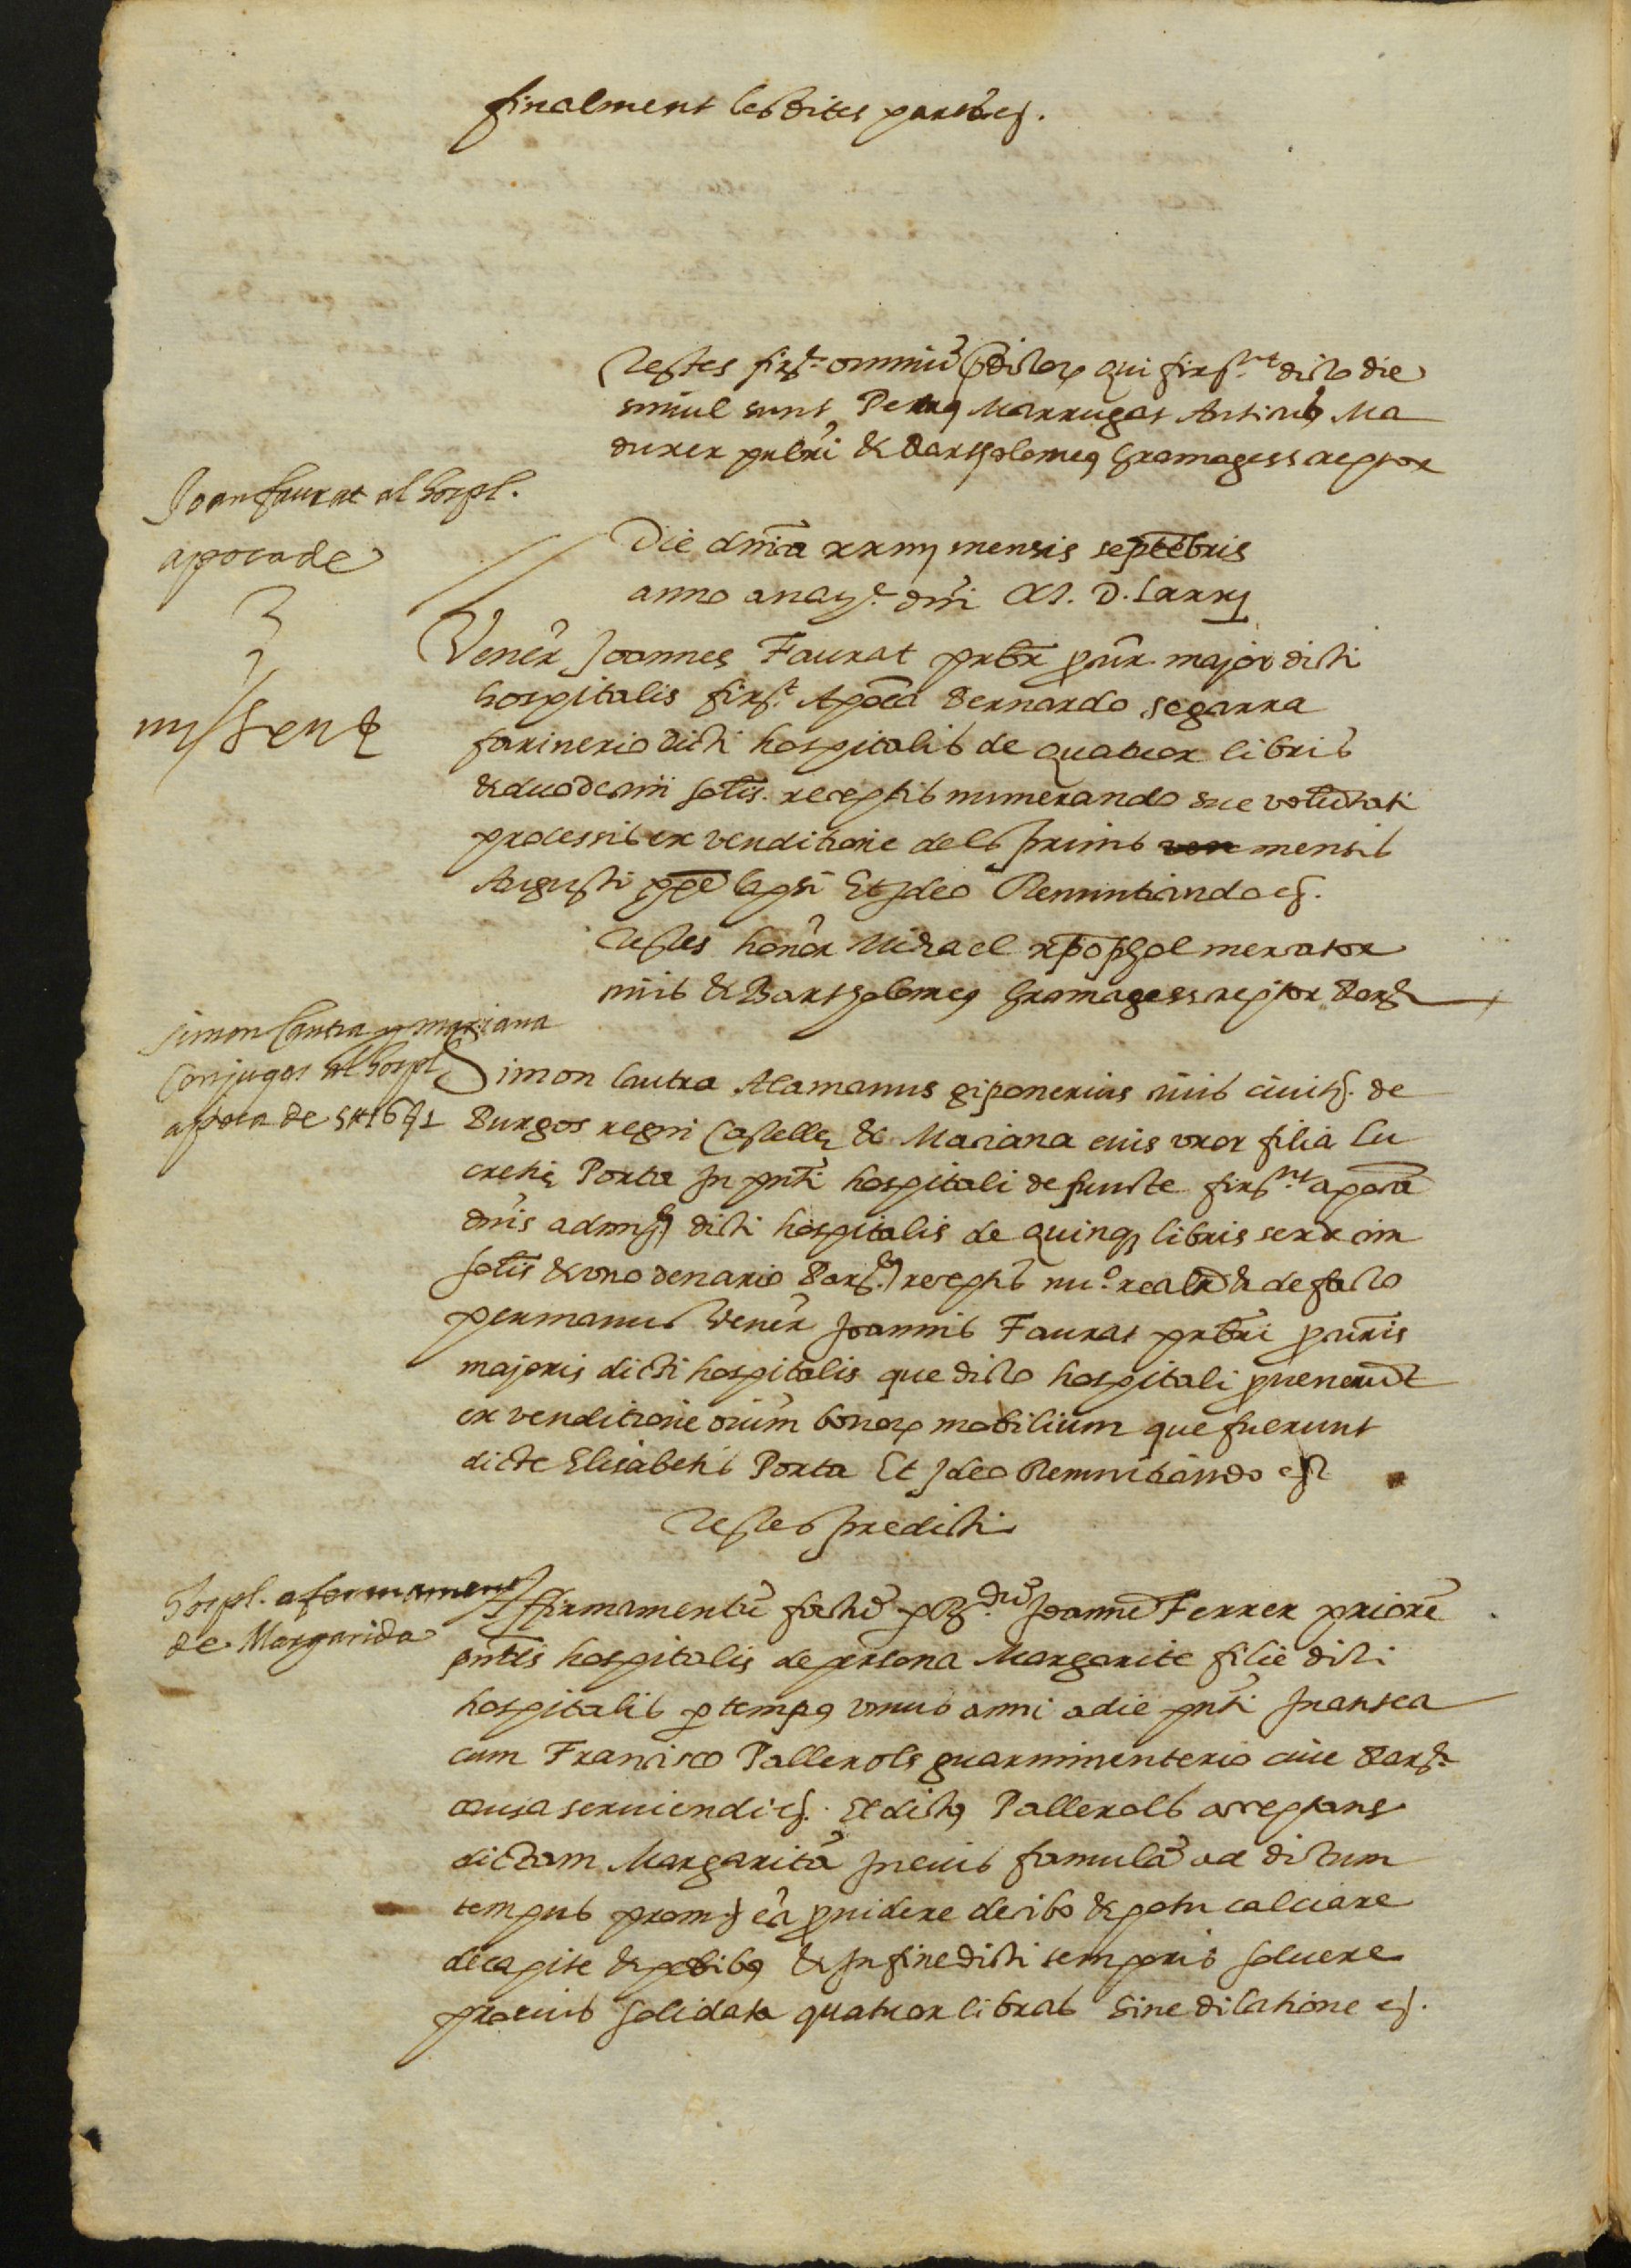 finalment les dites parts etc.
Testes firme omniũ p̃dictorꝫ qui firẽnt dicto die
simul sunt Petrus Marrugat Antiċus Ma
durer prbri & Bartholomeus Gramages scriptor
Joan faurat al hospl.
apocade
Die dnica xxiiij mensis septẽbris
anno a naẽ dñi M. D. Lxxxj
Venẽr Joannes Faurat prbr p̃cur major dicti
hospitalis firẽt Apocã Bernardo Segarra
farinerio dicti hospitalis de quatuor libris
& duodecim solis. receptis numerando sue volũtati
processis ex venditione dels prims mensis
Augusti pp̃e lapsi Et Ideo Renuntiando etc.
Testes honor Michael xpophol mercator
civis & Bartholomeus Gramages scriptor Barẽ
Simon lautra y mariana
Conjuges al hospl
apoca de 5 ℔ 16 ẜ 1
Simon lautra Alamanus giponerius civis civitẽ. de
Burgos regni Castelle & Mariana eius uxor filia Lu
cretie Porta In pñti hospitali defuncte firẽnt apocã
dñis admẽs dicti hospitalis de quinqꝫ libris sexdecim
solis & uno denario Barẽ receptis nuo. realr & de facto
per manus Venẽr Joannis Faurat prbri p̃curis
majoris dicti hospitalis que dicto hospitali p̃venerũt
ex venditione oĩum bonorꝫ mobilium que fuerunt
dicte Elisabetis Porta Et Ideo Renuntiando etc
Testes predicti
hospl. afermament
de Margarida
Affirmamentũ factũ p Rẽ. dũ Joannẽ Ferrer priorẽ
pñtis hospitalis de persona Margarite filie dicti
hospitalis p tempus unius anni a die pñti In antea
cum Francisco Pallerols guarnimenterio cive Barẽ
causa serviendi etc. Et dictus Pallerols acceptans
dictam Margaritã In eius famulã ad dictum
tempus promẽ eã p̃videre de cibo & potu calciare
de capite & pedibus & In fine dicti temporis solvere
pro eius solidata quatuor libras sine dilatione etc.